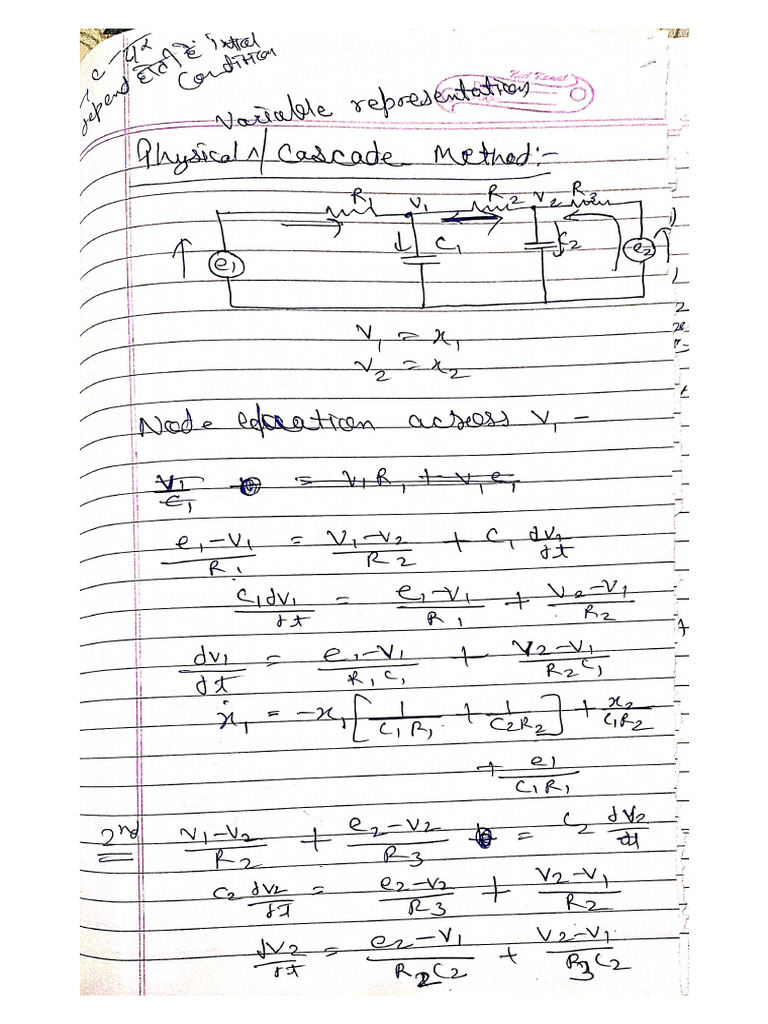 depend होती है initial
Condition
Variable representation
Physical / Cascade Method:-
R1 V1 R2 V2 R3
e1 C1 C2 e2
V1 = x1
V2 = x2
Node equation across V1 -
V1/C1 = V1R1 + V1e1
(e1-V1)/R1 = (V1-V2)/R2 + C1 dV2/dt
C1dV1/dt = (e1-V1)/R1 + (V2-V1)/R2
dV1/dt = (e1-V1)/R1C1 + (V2-V1)/R2C1
ẋ1 = -x1[1/C1R1 + 1/C2R2] + x2/C1R2
+ e1/C1R1
2nd (V1-V2)/R2 + (e2-V2)/R3 = C2 dV2/dt
C2 dV2/dt = (e2-V2)/R3 + (V2-V1)/R2
dV2/dt = (e2-V1)/R2C2 + (V2-V1)/R3C2